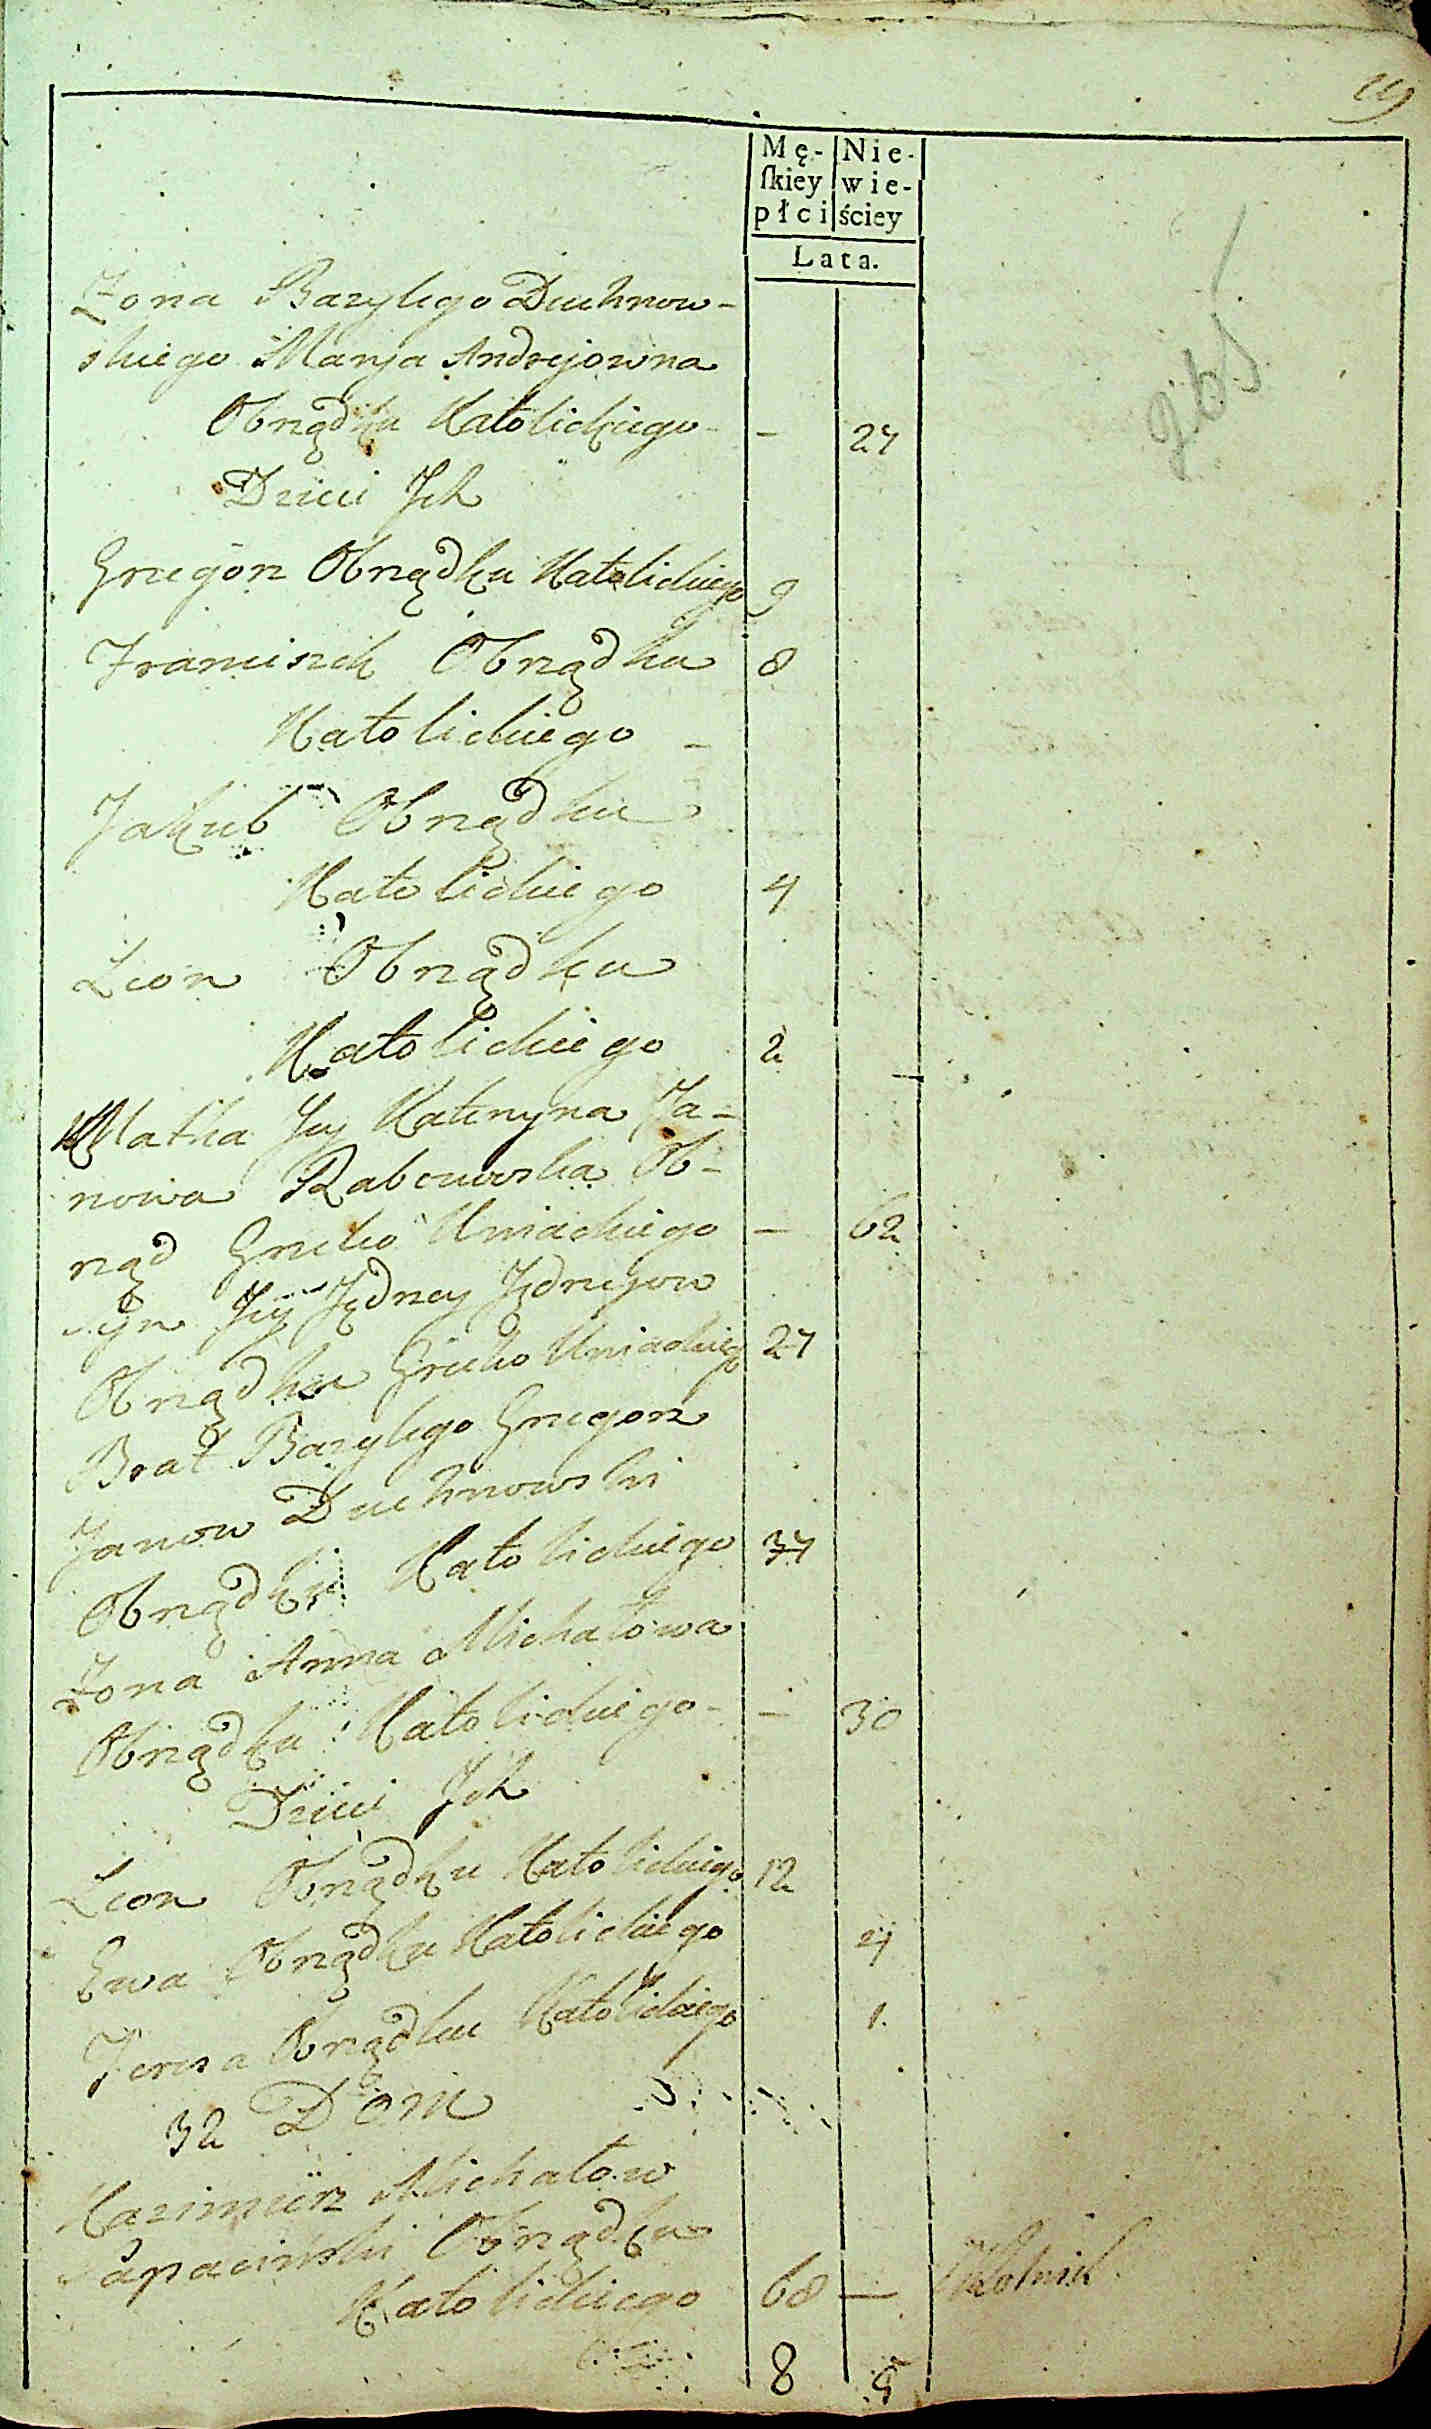 Mę-
ſkiey
płci
Nie-
wie-
ściey
Lata.
Żona Bazylego Duchnow-
skiego Marya Andrejowna
Obrządku Katolickiego - - 27
Dzieci Jch
Grzegorz Obrządku Katolickiego 9
Franciszek Obrządku 8
Katolickiego -
Jakub Obrządku
Katolickiego 4
Leon Obrządku
Katolickiego 2
Matka Jey Kateryna Ja-
nowa Ob-
rząd Greko Uniackiego - 62
Syn Jey Jędrzej Jędrzejow
Obrządku Greko Uniackiego 27
Brat Bazylego Grzegorz
Janow Duchnowski
Obrządku Katolickiego 37
Żona Anna Michałowa
Obrządku Katolickiego - - 30
Dzieci Jch
Leon Obrządku Katolickiego 12
Ewa Obrządku Katolickiego 4
Teresa Obrządku Katolickiego 1.
32 Dom
Kazimierz Michałow
Obrządku
Katolickiego 68 -
8 5